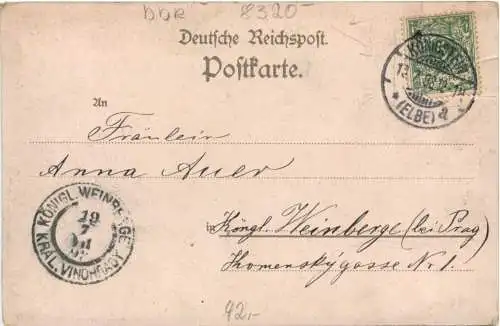 DDR 8320-
Deutsche Reichspost.
Postkarte.
KÖNIGSTEIN
(ELBE) a
An
Fräulein
Anna Auer
in Köngl. Weinberge (bei Prag)
Komenskýgasse Nr 1.
KÖNIGL. WEINBERGE
19
7
VII
KRÁL. VINOHRADY
92.-